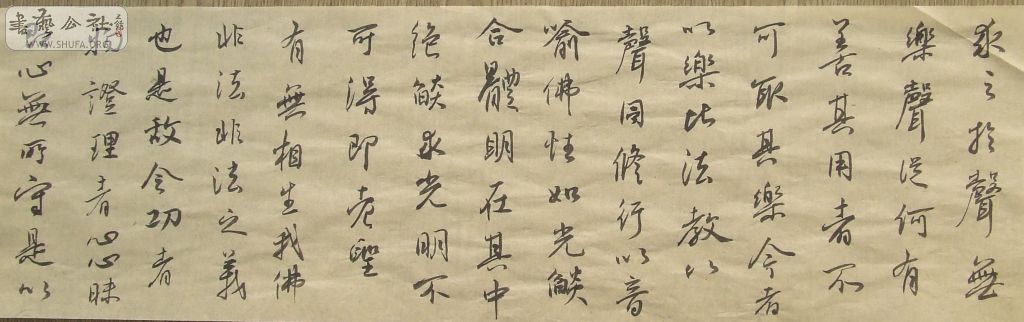 求之於聲無
樂聲從何有
善其用者不
可取其樂今者
以樂比法教以
聲同脩行以音
喻佛性如光燄
合體明在其中
絕燄求光明不
可得即老聖
有無相生我佛
非法非法之義
也是故今功者
證理者心心昧
心無所守是以
書藝公社
WWW.SHUFA.ORG